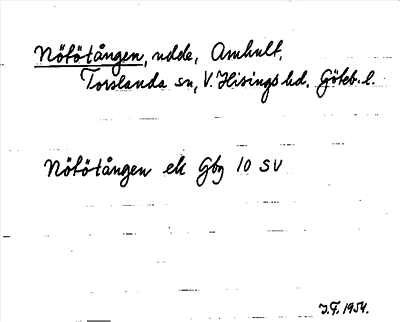 Nötötången, udde, Amhult,
Torslanda sn, V. Hisings hd, Göteb. l.
Nötötången ek Gbg 10 SV
J.F. 1954.